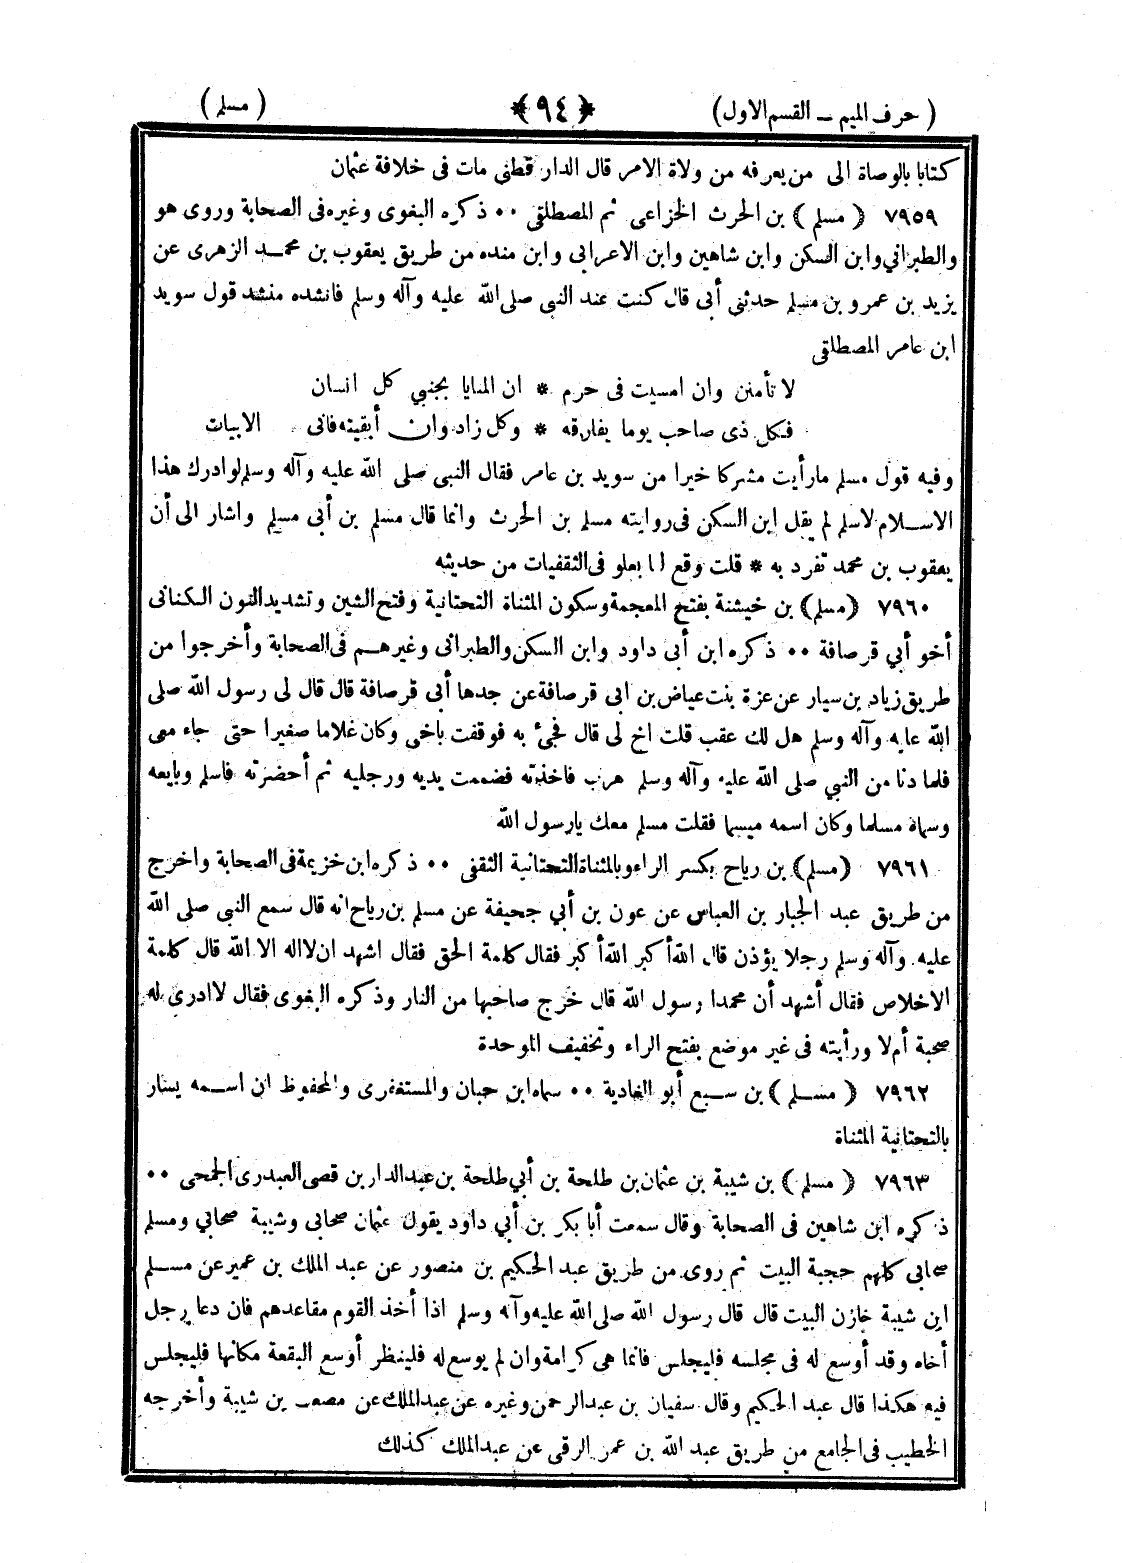 ( حرف الميم – القسم الاول) ﴿ ٩٤ ﴾ ( مسلم )
كتابا بالوصاة الى من يعرفه من ولاة الامر قال الدار قطنى مات فى خلافة عثمان
٧٩٥٩ ﴿ مسلم ﴾ بن الحرث الخزاعى ثم المصطلقى ٠٠ ذكره البغوى وغيره فى الصحابة وروى هو
والطبراني وابن السكن وابن شاهين وابن الاعرابى وابن منده من طريق يعقوب بن محمد الزهرى عن
يزيد بن عمرو بن مسلم حدثنى أبى قال كنت عند النبى صلى الله عليه وآله وسلم فانشده منشد قول سويد
ابن عامر المصطلقى
لا تأمنن وان امسيت فى حرم * ان المنايا بجنبي كل انسان
فكل ذى صاحب يوما يفارقه * وكل زاد وان أبقيته فانى الابيات
وفيه قول مسلم مارأيت مشركا خيرا من سويد بن عامر فقال النبي صلى الله عليه وآله وسلم لو ادرك هذا
الاسلام لاسلم لم يقل ابن السكن فى روايته مسلم بن الحرث وانما قال مسلم بن أبى مسلم واشار الى أن
يعقوب بن محمد تفرد به * قلت وقع لنا بعلو فى الثقفيات من حديثه
٧٩٦٠ ﴿مسلم﴾ بن خيشنة بفتح المعجمة وسكون المثناة التحتانية وفتح الشين وتشديد النون الكنانى
أخو أبي قرصافة ٠٠ ذكره ابن أبى داود وابن السكن والطبرانى وغيرهم فى الصحابة وأخرجوا من
طريق زياد بن سيار عن عزة بنت عياض بن ابى قرصافة عن جدها أبى قرصافة قال قال لى رسول الله صلى
الله عليه وآله وسلم هل لك عقب قلت اخ لى قال فجئ به فوقفت باخى وكان غلاما صغيرا حتى جاء معى
فلما دنا من النبي صلى الله عليه وآله وسلم هرب فاخذته فضممت يديه ورجليه ثم أحضرته فاسلم وبايعه
وسماه مسلما وكان اسمه ميسما فقلت مسلم معك يارسول الله
٧٩٦١ ﴿مسلم﴾ بن رياح بكسر الراء وبالمثناة التحتانية الثقفى ٠٠ ذكره ابن خزيمة فى الصحابة واخرج
من طريق عبد الجبار بن العباس عن عون بن أبي جحيفة عن مسلم بن رياح انه قال سمع النبي صلى الله
عليه وآله وسلم رجلا يؤذن قال الله أكبر الله أكبر فقال كلمة الحق فقال اشهد ان لااله الا الله قال كلمة
الاخلاص فقال أشهد أن محمدا رسول الله قال خرج صاحبها من النار وذكره البغوى فقال لاادرى له
صحبة أم لا ورأيته فى غير موضع بفتح الراء وتخفيف الموحدة
٧٩٦٢ ﴿ مسلم ﴾ بن سبع أبو الغادية ٠٠ سماه ابن حبان والمستغفرى والمحفوظ ان اسمه يسار
بالتحتانية المثناة
٧٩٦٣ ﴿ مسلم ﴾ بن شيبة بن عثمان بن طلحة بن أبي طلحة بن عبد الدار بن قصى العبدرى الجمحى ٠٠
ذكره ابن شاهين فى الصحابة وقال سمعت أبا بكر بن أبي داود يقول عثمان صحابى وشيبة صحابي ومسلم
صحابى كلهم حجبة البيت ثم روى من طريق عبد الحكيم بن منصور عن عبد الملك بن عمير عن مسلم
ابن شيبة خازن البيت قال قال رسول الله صلى الله عليه وآله وسلم اذا أخذ القوم مقاعدهم فان دعا رجل
أخاه وقد أوسع له فى مجلسه فليجلس فانما هى كرامة وان لم يوسع له فلينظر أوسع البقعة مكانها فليجلس
فيه هكذا قال عبد الحكيم وقال سفيان بن عبد الرحمن وغيره عن عبد الملك عن مصعب بن شيبة وأخرجه
الخطيب فى الجامع من طريق عبد الله بن عمر الرقى عن عبد الملك كذلك